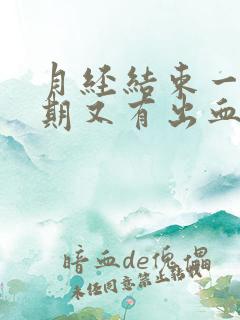 月经结束一
期又有出血
暗血de傀儡
未经同意禁止转载